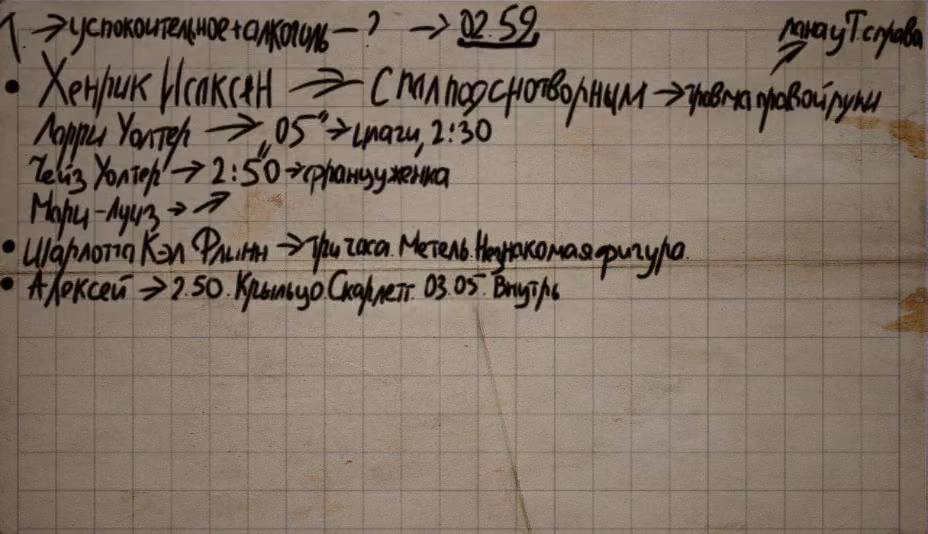 1. → успокоительное+алкоголь — ? → 02.59
рана у Т. справа
• Хенрик Исаксен → Спал под снотворным → травма правой руки
Ларри Уолтер → „05" → шаги, 2:30
Чейз Уолтер → 2:50 → француженка
Мари-Луиз → ↗
• Шарлотта Кэл Флинн → Три часа. Метель. Незнакомая фигура.
• Алексей → 2.50. Крыльцо. Скарлетт. 03.05. Внутрь